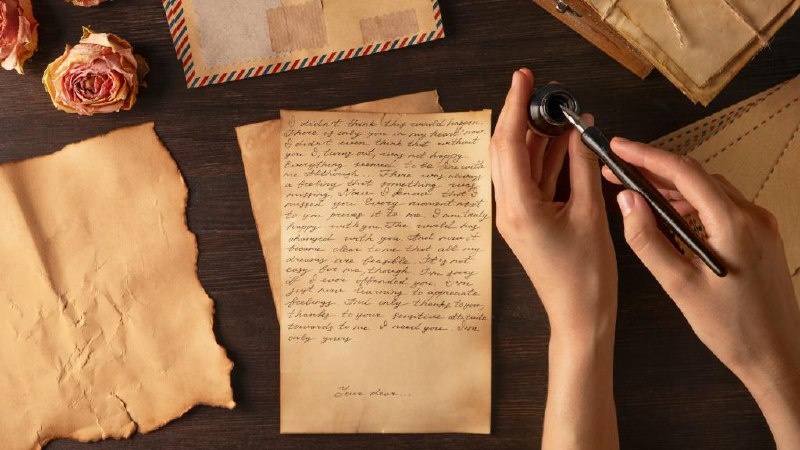 I didn't think this would happen.
There is only you in my heart now.
I didn't even think that without
you I, turns out, was not happy.
Everything seemed to be fine with
me although... There was always
a feeling that something was
missing. Now I know that I
missed you. Every moment next
to you proves it to me. I am truly
happy with you. The world has
changed with you. And now it
became clear to me that all my
dreams are feasible. It is not
easy for me, though. I'm sorry
if I ever offended you. I'm
just now learning to appreciate
feelings. And only thanks to you,
thanks to your sensitive attitude
towards to me. I need you. I'm
only yours
Your dear...